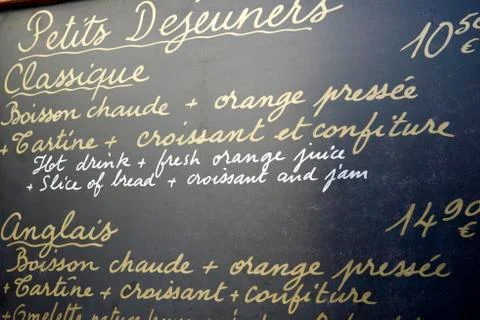 Petits Dejeuners
Classique 10⁵⁰€
Boisson chaude + orange pressée
+ Tartine + croissant et confiture
Hot drink + fresh orange juice
+ Slice of bread + croissant and jam
Anglais 14⁹⁰€
Boisson chaude + orange pressée
+ Tartine + croissant + confiture
+ Omelette nature